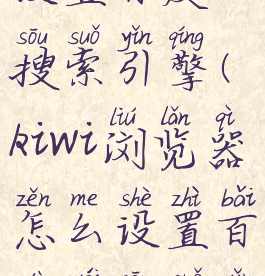 sōu suǒ yǐn qíng
搜索引擎(
liú lǎn qì
kiwi浏览器
zěn me shè zhì bǎi
怎么设置百